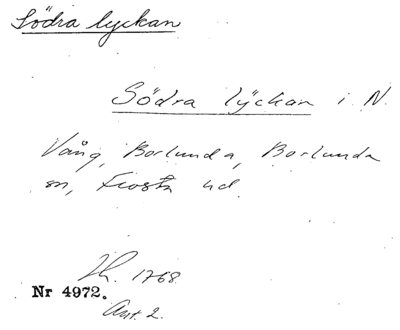 Södra lyckan
Södra lyckan i N.
Vång, Borlunda, Borlunda
sn, Frosta hd.
1768.
Nr 4972.
Akt. 2.